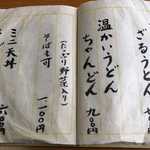 ざるうどん
温かいうどん
ちゃんどん
九〇〇円
(たっぷり野菜入り)
そば も可
一一〇〇円
ミニ天丼
六〇〇円